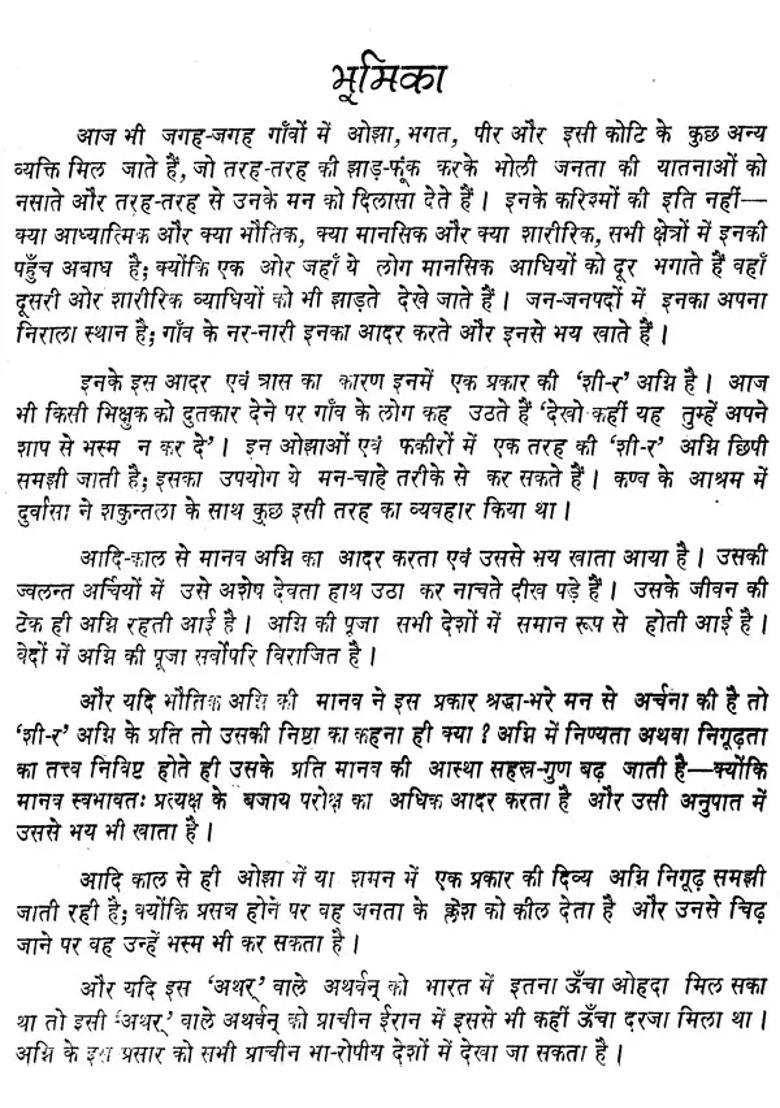 भूमिका
आज भी जगह-जगह गाँवों में ओझा, भगत, पीर और इसी कोटि के कुछ अन्य
व्यक्ति मिल जाते हैं, जो तरह-तरह की झाड़-फूंक करके भोली जनता की यातनाओं को
नसाते और तरह-तरह से उनके मन को दिलासा देते हैं। इनके करिश्मों की इति नहीं—
क्या आध्यात्मिक और क्या भौतिक, क्या मानसिक और क्या शारीरिक, सभी क्षेत्रों में इनकी
पहुँच अबाध है; क्योंकि एक ओर जहाँ ये लोग मानसिक आधियों को दूर भगाते हैं वहाँ
दूसरी ओर शारीरिक व्याधियों को भी झाड़ते देखे जाते हैं। जन-जनपदों में इनका अपना
निराला स्थान है; गाँव के नर-नारी इनका आदर करते और इनसे भय खाते हैं।
इनके इस आदर एवं त्रास का कारण इनमें एक प्रकार की ‘शी-र’ अग्नि है। आज
भी किसी भिक्षुक को दुतकार देने पर गाँव के लोग कह उठते हैं ‘देखो कहीं यह तुम्हें अपने
शाप से भस्म न कर दे’। इन ओझाओं एवं फकीरों में एक तरह की ‘शी-र’ अग्नि छिपी
समझी जाती है; इसका उपयोग ये मन-चाहे तरीके से कर सकते हैं। कण्व के आश्रम में
दुर्वासा ने शकुन्तला के साथ कुछ इसी तरह का व्यवहार किया था।
आदि-काल से मानव अग्नि का आदर करता एवं उससे भय खाता आया है। उसकी
ज्वलन्त अर्चियों में उसे अशेष देवता हाथ उठा कर नाचते दीख पड़े हैं। उसके जीवन की
टेक ही अग्नि रहती आई है। अग्नि की पूजा सभी देशों में समान रूप से होती आई है।
वेदों में अग्नि की पूजा सर्वोपरि विराजित है।
और यदि भौतिक अग्नि की मानव ने इस प्रकार श्रद्धा-भरे मन से अर्चना की है तो
‘शी-र’ अग्नि के प्रति तो उसकी निष्ठा का कहना ही क्या? अग्नि में निण्यता अथवा निगूढ़ता
का तत्त्व निविष्ट होते ही उसके प्रति मानव की आस्था सहस्र-गुण बढ़ जाती है—क्योंकि
मानव स्वभावतः प्रत्यक्ष के बजाय परोक्ष का अधिक आदर करता है और उसी अनुपात में
उससे भय भी खाता है।
आदि काल से ही ओझा में या शमन में एक प्रकार की दिव्य अग्नि निगूढ़ समझी
जाती रही है; क्योंकि प्रसन्न होने पर वह जनता के क्लेश को कील देता है और उनसे चिढ़
जाने पर वह उन्हें भस्म भी कर सकता है।
और यदि इस ‘अथर्’ वाले अथर्वन् को भारत में इतना ऊँचा ओहदा मिल सका
था तो इसी ‘अथर्’ वाले अथर्वन् को प्राचीन ईरान में इससे भी कहीं ऊँचा दरजा मिला था।
अग्नि के इस प्रसार को सभी प्राचीन भा-रोपीय देशों में देखा जा सकता है।